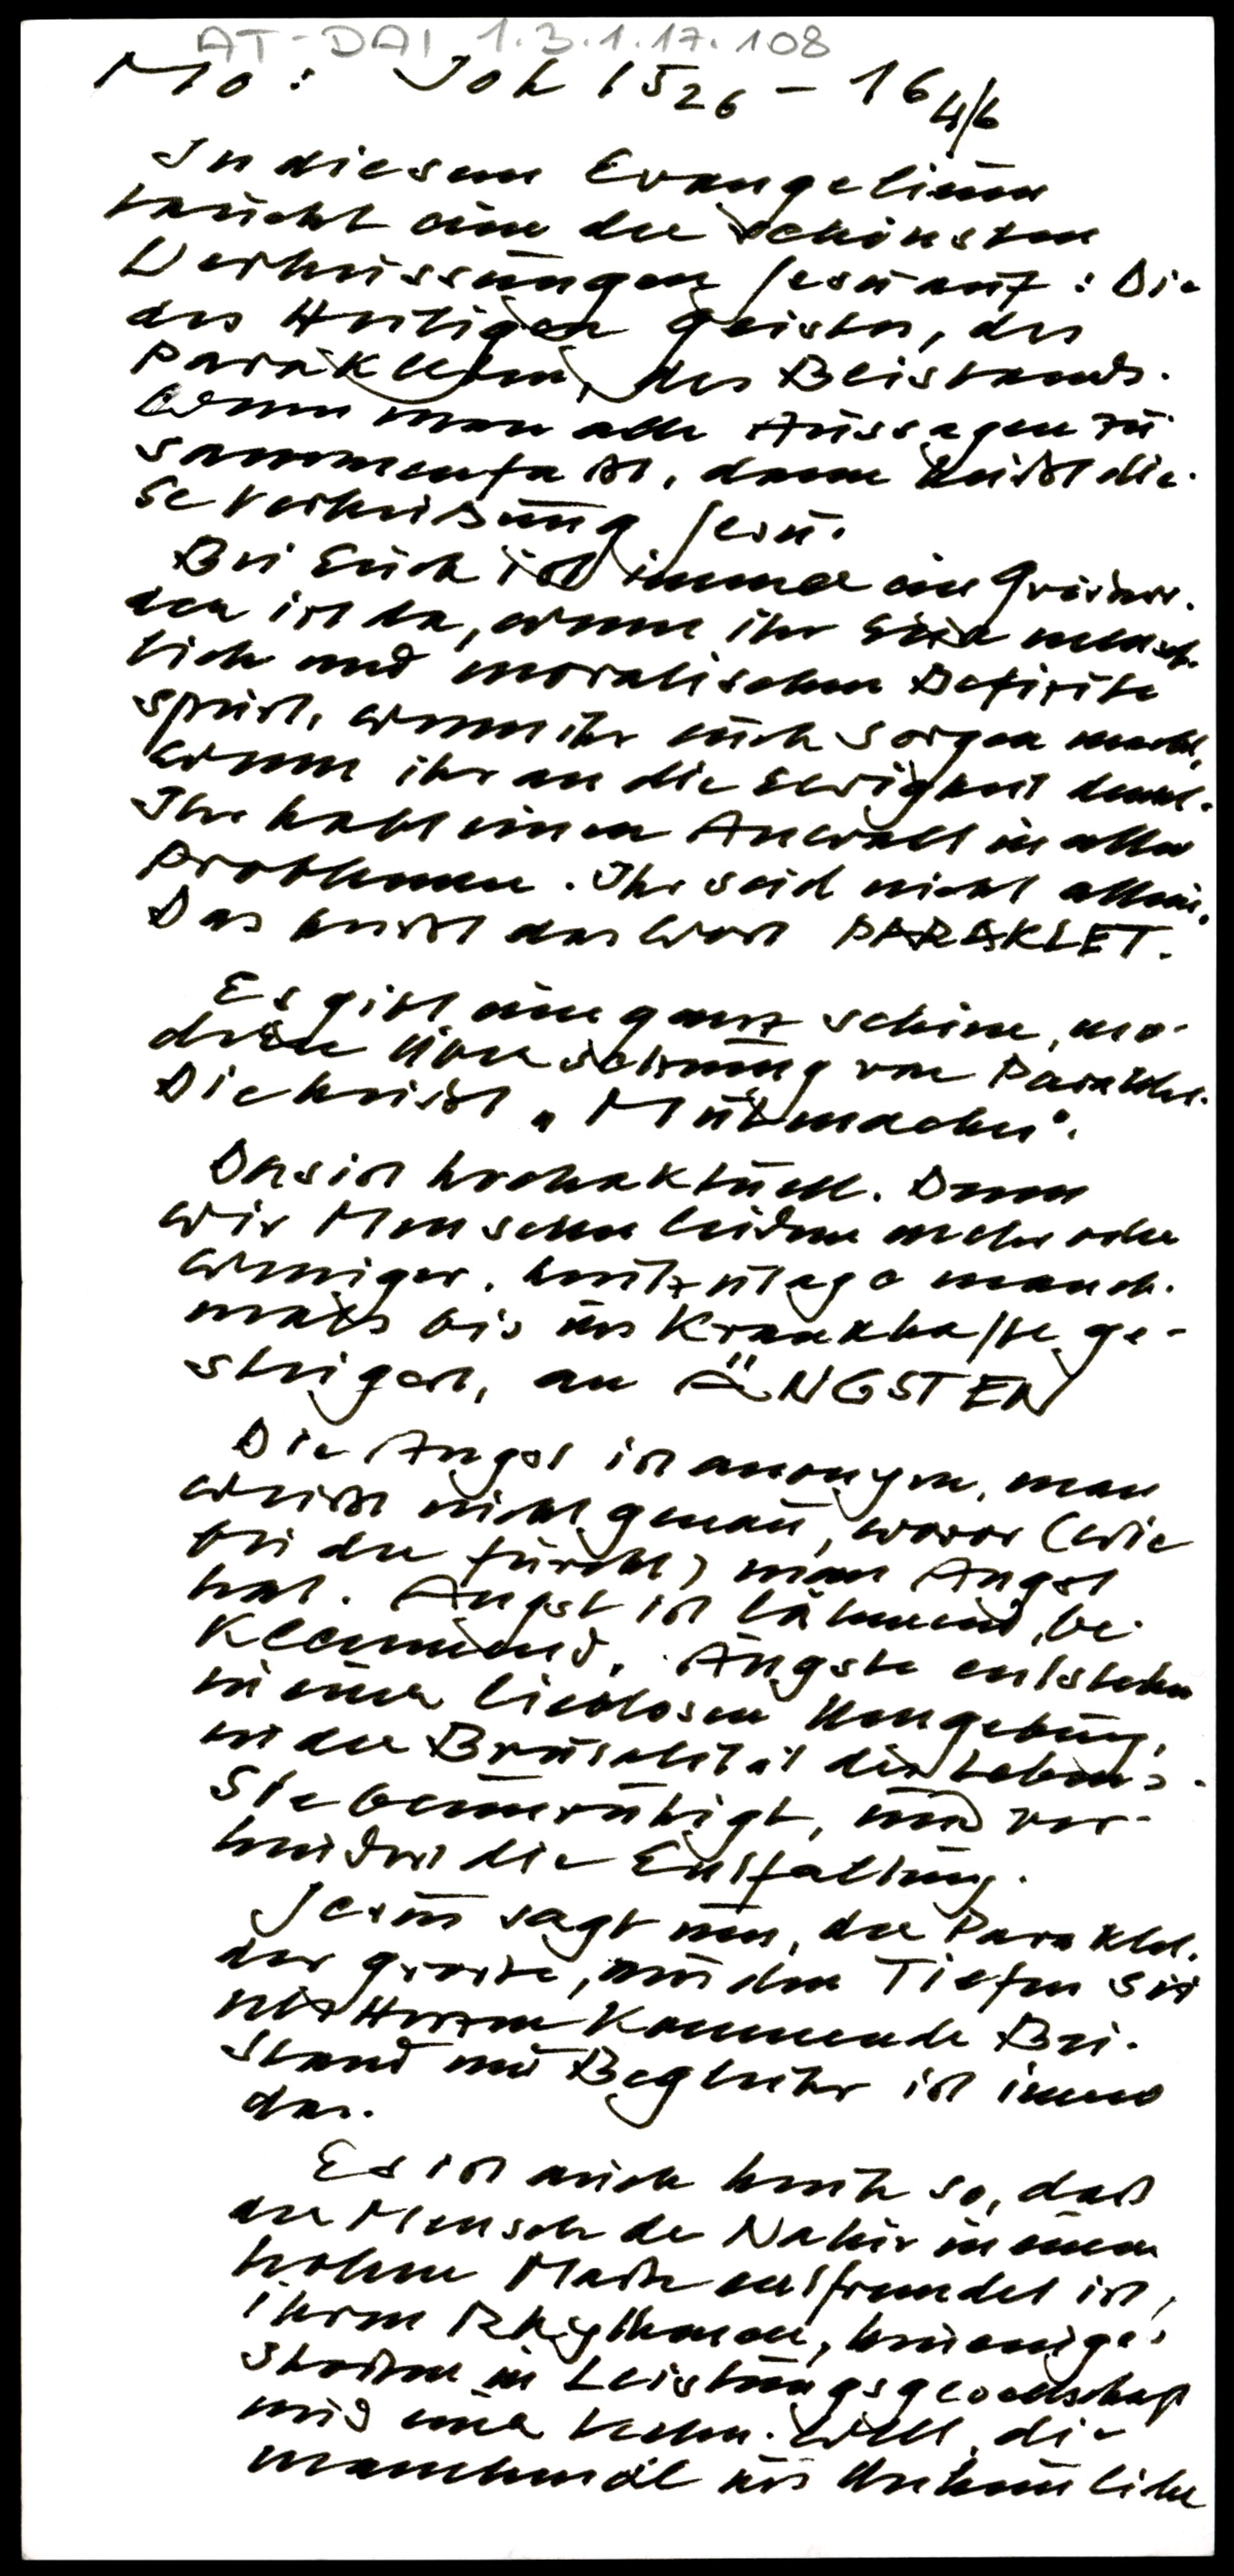 AT-DAI 1.3.1.17.108
Mo: Joh 15 26 - 16 4/6
In diesem Evangelium
taucht eine der schönsten
Verheissungen Jesu auf: Die
des Heiligen Geistes, des
Parakleten, des Beistands.
Wenn man alle Aussagen zu
sammenfaßt, dann heißt die.
se Verheißung Jesu.
Bei Euch ist immer ein Größerer.
der ist da, wenn ihr Eure mensch.
lich und moralischen Defizite
spürt, wenn ihr euch Sorgen macht,
wenn ihr an die Ewigkeit denkt.
Ihr habt einen Anwalt in allen
Problemen. Ihr seid nicht allein.
Das heißt das Wort PARAKLET.
Es gibt eine ganz schöne, mo-
derne Übersetzung von Paraklet.
Die heißt "Mutmacher".
Das ist hochaktuell. Denn
wir Menschen leiden mehr oder
weniger, heutzutage manch.
mals bis ins Krankhafte ge-
steigert, an ÄNGSTEN
Die Angst ist anonym, man
weißt nicht genau, wovor (wie
bei der Furcht) man Angst
hat. Angst ist lähmend, be.
klemmend. Ängste entstehen
in einer lieblosen Umgebung,
in der Brutalität des Lebens.
Sie beunruhigt, und ver-
hindert die Entfaltung.
Jesus sagt nun, der Paraklet.
der große, aus den Tiefen
Herzen kommende Bei.
stand und Begleiter ist immer
da.
Es ist auch heute so, daß
der Mensch der Natur in einem
hohen Maße entfremdet ist,
ihren Rhythmen, hineinge.
stoßen in Leistungsgesellschaft
und eine techn. Welt, die
manchmal ins Unheimliche